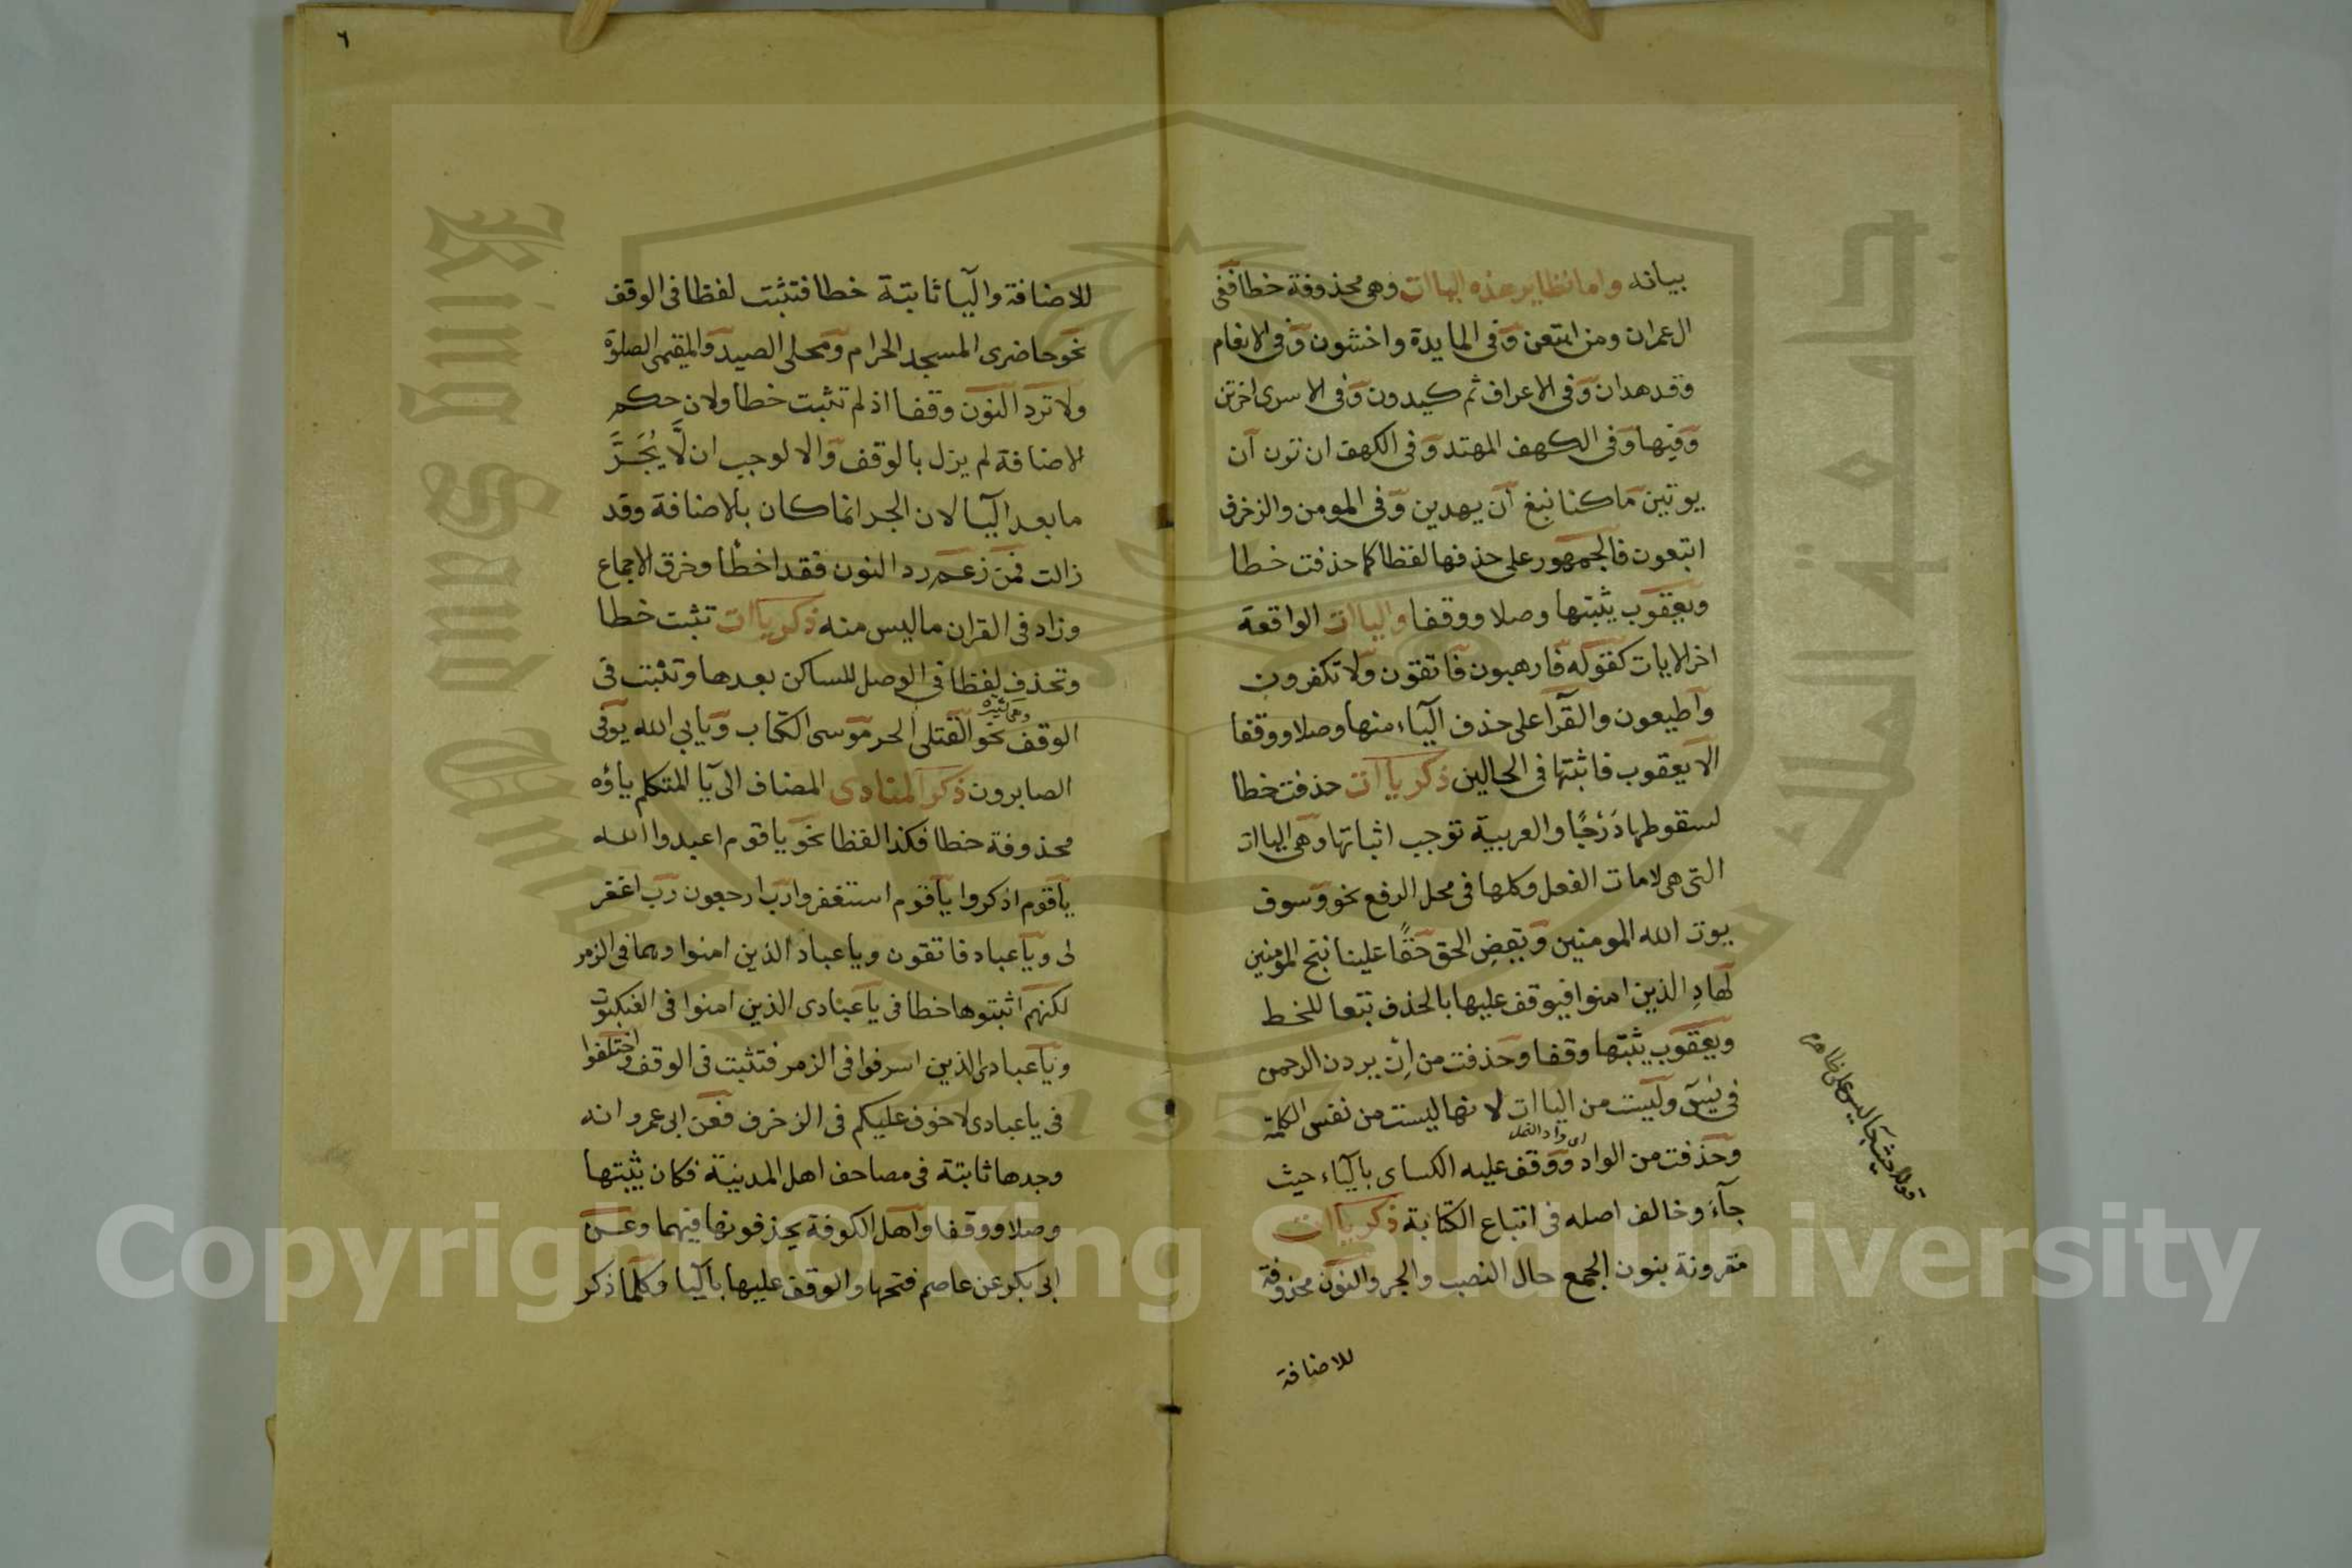 بيانه واما نظاير هذه الياات وهى محذوفة خطا ففى
ال عمران ومن اتبعن وفى المايدة واخشون وفى الانعام
وقد هدان وفى الاعراف ثم كيدون وفى الاسرى اخرتن
وفيها وفى الكهف المهتد وفى الكهف ان ترن ان
يوتين ما كنا نبغ ان يهدين وفى المومن والزخرف
اتبعون فالجمهور على حذفها لفظا كما حذفت خطا
ويعقوب يثبتها وصلا ووقفا والياات الواقعة
اخر الايات كقوله فارهبون فاتقون ولا تكفرون
واطيعون والقرآ على حذف اليآء منها وصلا ووقفا
الا يعقوب فاثبتها فى الحالين ذكر ياات حذفت خطا
لسقوطها دَرْجًا والعربية توجب اثباتها وهى الياات
التى هى لامات الفعل وكلها فى محل الرفع نحو وسوف
يوت الله المومنين ويقض الحق حقًا علينا ننج المومنين
لهادِ الذين امنوا فيوقف عليها بالحذف تبعا للخط
ويعقوب يثبتها وقفا وحذفت من اِنْ يردن الرحمن
فى يٰسٓ وليست من الياات لانها ليست من نفس الكلمة
اى واد النمل
وحذفت من الواد ووقف عليه الكساى باليآء حيث
جآء وخالف اصله فى اتباع الكتابة ذكر ياات
مقرونة بنون الجمع حال النصب والجر والنون محذوفة
للاضافة
قوله حيث جا ليس على ظاهره
٦
للاضافة واليآ ثابتة خطا فتثبت لفظا فى الوقف
نحو حاضرى المسجد الحرام ومحلى الصيد والمقيمى الصلوة
ولا ترد النون وقفا اذ لم تثبت خطا ولان حكم
الاضافة لم يزل بالوقف والا لوجب ان لَّا يُجَرَّ
ما بعد اليآ لان الجر انما كان بالاضافة وقد
زالت فمن زعم رد النون فقد اخطا وخرق الاجماع
وزاد فى القران ما ليس منه ذكر ياات تثبت خطا
وتحذف لفظا فى الوصل للساكن بعدها وتثبت فى
وهى كثيرة
الوقف نحو القتلى الحر موسى الكتاب ويابى الله يوفى
الصابرون ذكر المنادى المضاف الى يآ المتكلم ياؤه
محذوفة خطا فكذا لفظا نحو ياقوم اعبدوا الله
ياقوم اذكروا ياقوم استغفروا رب ارجعون رب اغفر
لى وياعباد فاتقون وياعباد الذين امنوا وهما فى الزمر
لكنهم اثبتوها خطا فى ياعبادى الذين امنوا فى العنكبوت
وياعبادى الذين اسرفوا فى الزمر فتثبت فى الوقف واختلفوا
فى ياعبادى لا خوف عليكم فى الزخرف فعن ابى عمرو انه
وجدها ثابتة فى مصاحف اهل المدينة فكان يثبتها
وصلا ووقفا واهل الكوفة يحذفونها فيهما وعن
ابى بكر عن عاصم فتحها والوقف عليها باليآ وكلما ذكر
King Saud University
جامعة الملك سعود
1957
Copyright © King Saud University